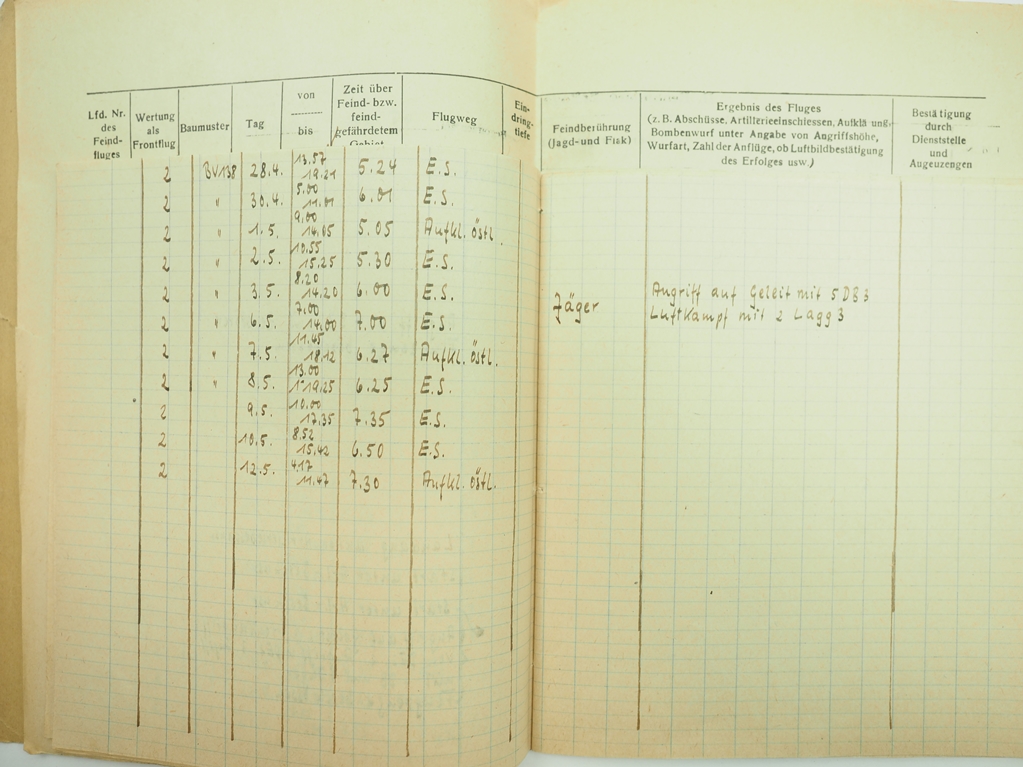 Lfd. Nr. des Feind-fluges | Wertung als Frontflug | Baumuster | Tag | von bis | Zeit über Feind- bzw. feind-gefährdetem Gebiet | Flugweg | Ein-dring-tiefe | Feindberührung (Jagd- und Flak) | Ergebnis des Fluges (z. B. Abschüsse, Artillerieeinschiessen, Aufklä ung, Bombenwurf unter Angabe von Angriffshöhe, Wurfart, Zahl der Anflüge, ob Luftbildbestätigung des Erfolges usw.) | Bestätigung durch Dienststelle und Augenzeugen
2 BV138 28.4. 13.57 19.21 5.24 E.S.
2 " 30.4. 5.00 11.01 6.01 E.S.
2 " 1.5. 9.00 14.05 5.05 Aufkl. östl.
2 " 2.5. 10.55 15.25 5.30 E.S.
2 " 3.5. 8.20 14.20 6.00 E.S. Jäger Angriff auf Geleit mit 5 DB3
Luftkampf mit 2 Lagg 3
2 " 6.5. 7.00 14.00 7.00 E.S.
2 " 7.5. 11.45 18.12 6.27 Aufkl. östl.
2 " 8.5. 13.00 19.25 6.25 E.S.
2 9.5. 10.00 17.35 7.35 E.S.
2 10.5. 8.52 15.42 6.50 E.S.
2 12.5. 4.17 11.47 7.30 Aufkl. östl.